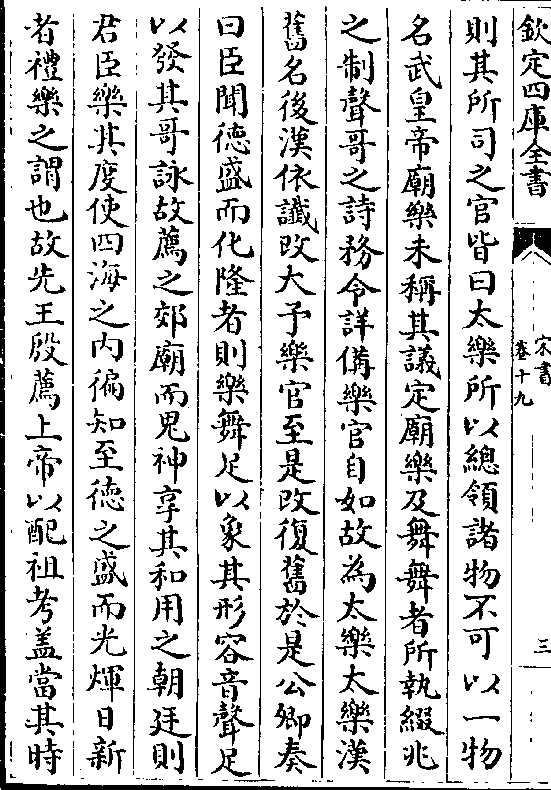 欽定四庫全書
宋書
卷十九
三
則其所司之官皆曰太樂所以總領諸物不可以一物
名武皇帝廟樂未稱其議定廟樂及舞舞者所執綴兆
之制聲哥之詩務令詳備樂官自如故為太樂太樂漢
舊名後漢依䜟改大予樂官至是改復舊於是公卿奏
曰臣聞德盛而化隆者則樂舞足以象其形容音聲足
以發其哥詠故薦之郊廟而鬼神享其和用之朝廷則
君臣樂其度使四海之內徧知至德之盛而光煇日新
者禮樂之謂也故先王殷薦上帝以配祖考盖當其時